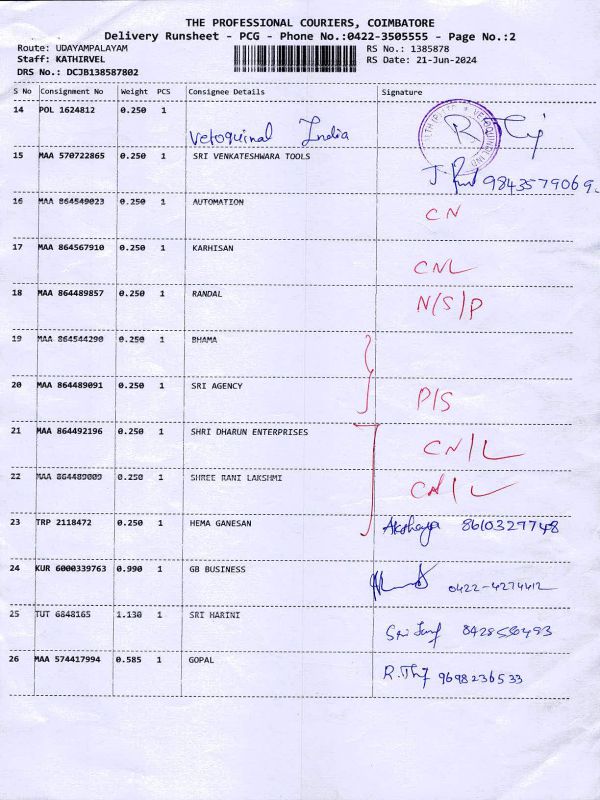 THE PROFESSIONAL COURIERS, COIMBATORE
Delivery Runsheet - PCG - Phone No.:0422-3505555 - Page No.:2
Route: UDAYAMPALAYAM RS No.: 1385878
Staff: KATHIRVEL RS Date: 21-Jun-2024
DRS No.: DCJB138587802
S No Consignment No Weight PCS Consignee Details Signature
14 POL 1624812 0.250 1
Vetoquinal India
15 MAA 570722865 0.250 1 SRI VENKATESHWARA TOOLS
9843579069.
16 MAA 864549023 0.250 1 AUTOMATION
CN
17 MAA 864567910 0.250 1 KARHISAN
CNL
18 MAA 864489857 0.250 1 RANDAL N/S/P
19 MAA 864544290 0.250 1 BHAMA
20 MAA 864489091 0.250 1 SRI AGENCY P/S
21 MAA 864492196 0.250 1 SHRI DHARUN ENTERPRISES
CN/L
22 MAA 864489009 0.250 1 SHREE RANI LAKSHMI
CN/L
23 TRP 2118472 0.250 1 HEMA GANESAN Akshaya 8610327748
24 KUR 6000339763 0.990 1 GB BUSINESS
0422-4274412
25 TUT 6848165 1.130 1 SRI HARINI
26 MAA 574417994 0.585 1 GOPAL
9698236533